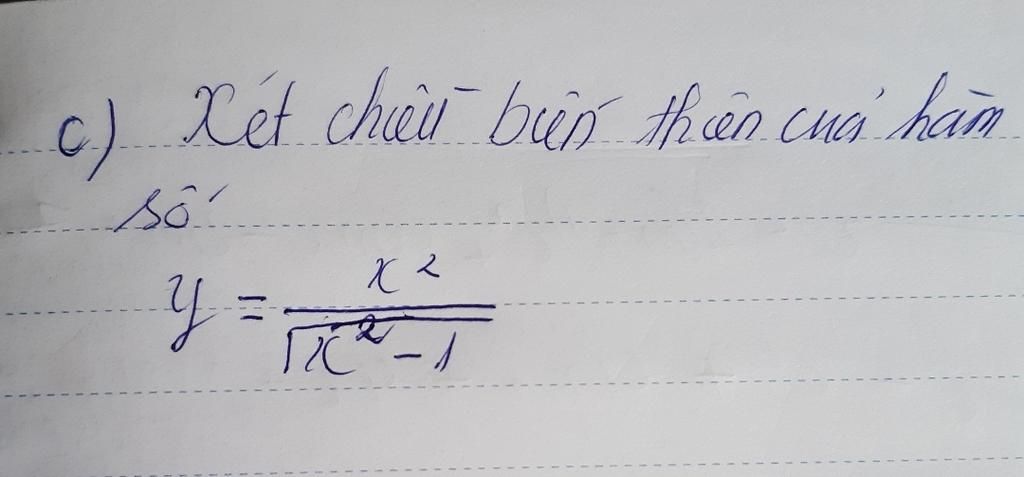 c) Xét chiều biến thiên của hàm
số
y = x² / √(x² - 1)